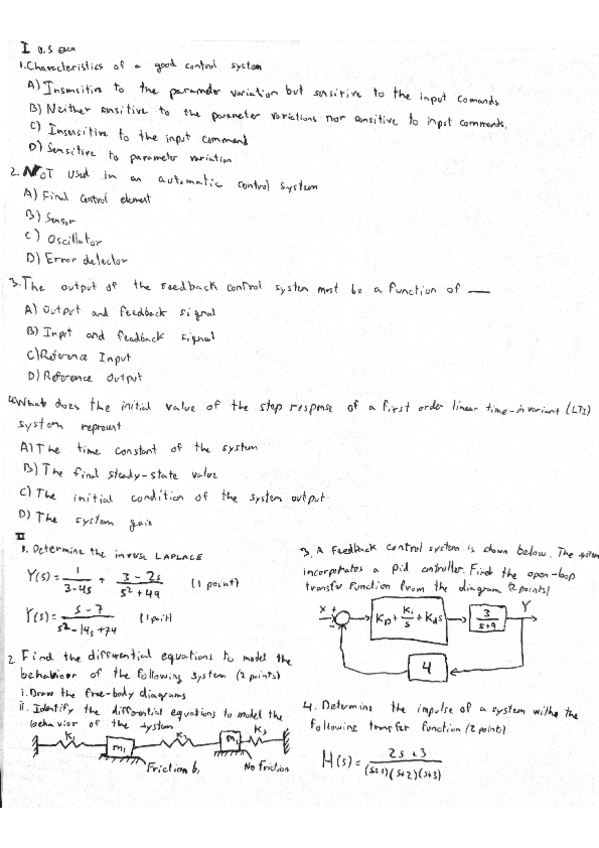 I 0.5 each
1. Characteristics of a good control system
A) Insensitive to the parameter variation but sensitive to the input comands
B) Neither sensitive to the parameter variations nor sensitive to input commands.
C) Insensitive to the input command
D) Sensitive to parameter variation
2. NOT used in an automatic control system
A) Final control element
B) Sensor
C) Oscillator
D) Error detector
3. The output of the feedback control system must be a function of ___
A) Output and feedback signal
B) Input and feedback signal
C) Reference Input
D) Reference Output
4. What does the initial value of the step response of a first order linear time-invariant (LTI)
system represent
A) The time constant of the system
B) The final steady-state value
C) The initial condition of the system output
D) The system gain
II
1. Determine the inverse LAPLACE
Y(s) = 1/(3-4s) + (3-2s)/(s²+49) (1 point)
Y(s) = (s-7)/(s²-14s+74) (1 point)
2. Find the differential equations to model the
behavior of the following system (2 points)
i. Draw the free-body diagrams
ii. Identify the differential equations to model the
behavior of the system
K₁ m₁ K₂ m₂ K₃
Friction b₁ No friction
3. A feedback control system is shown below. The system
incorporates a pid controller. Find the open-loop
transfer function from the diagram (2 points)
X + - Kp + Ki/s + Kds 3/(s+9) Y
4
4. Determine the impulse of a system withe the
following transfer function (2 point)
H(s) = (2s+3)/((s+1)(s+2)(s+3))